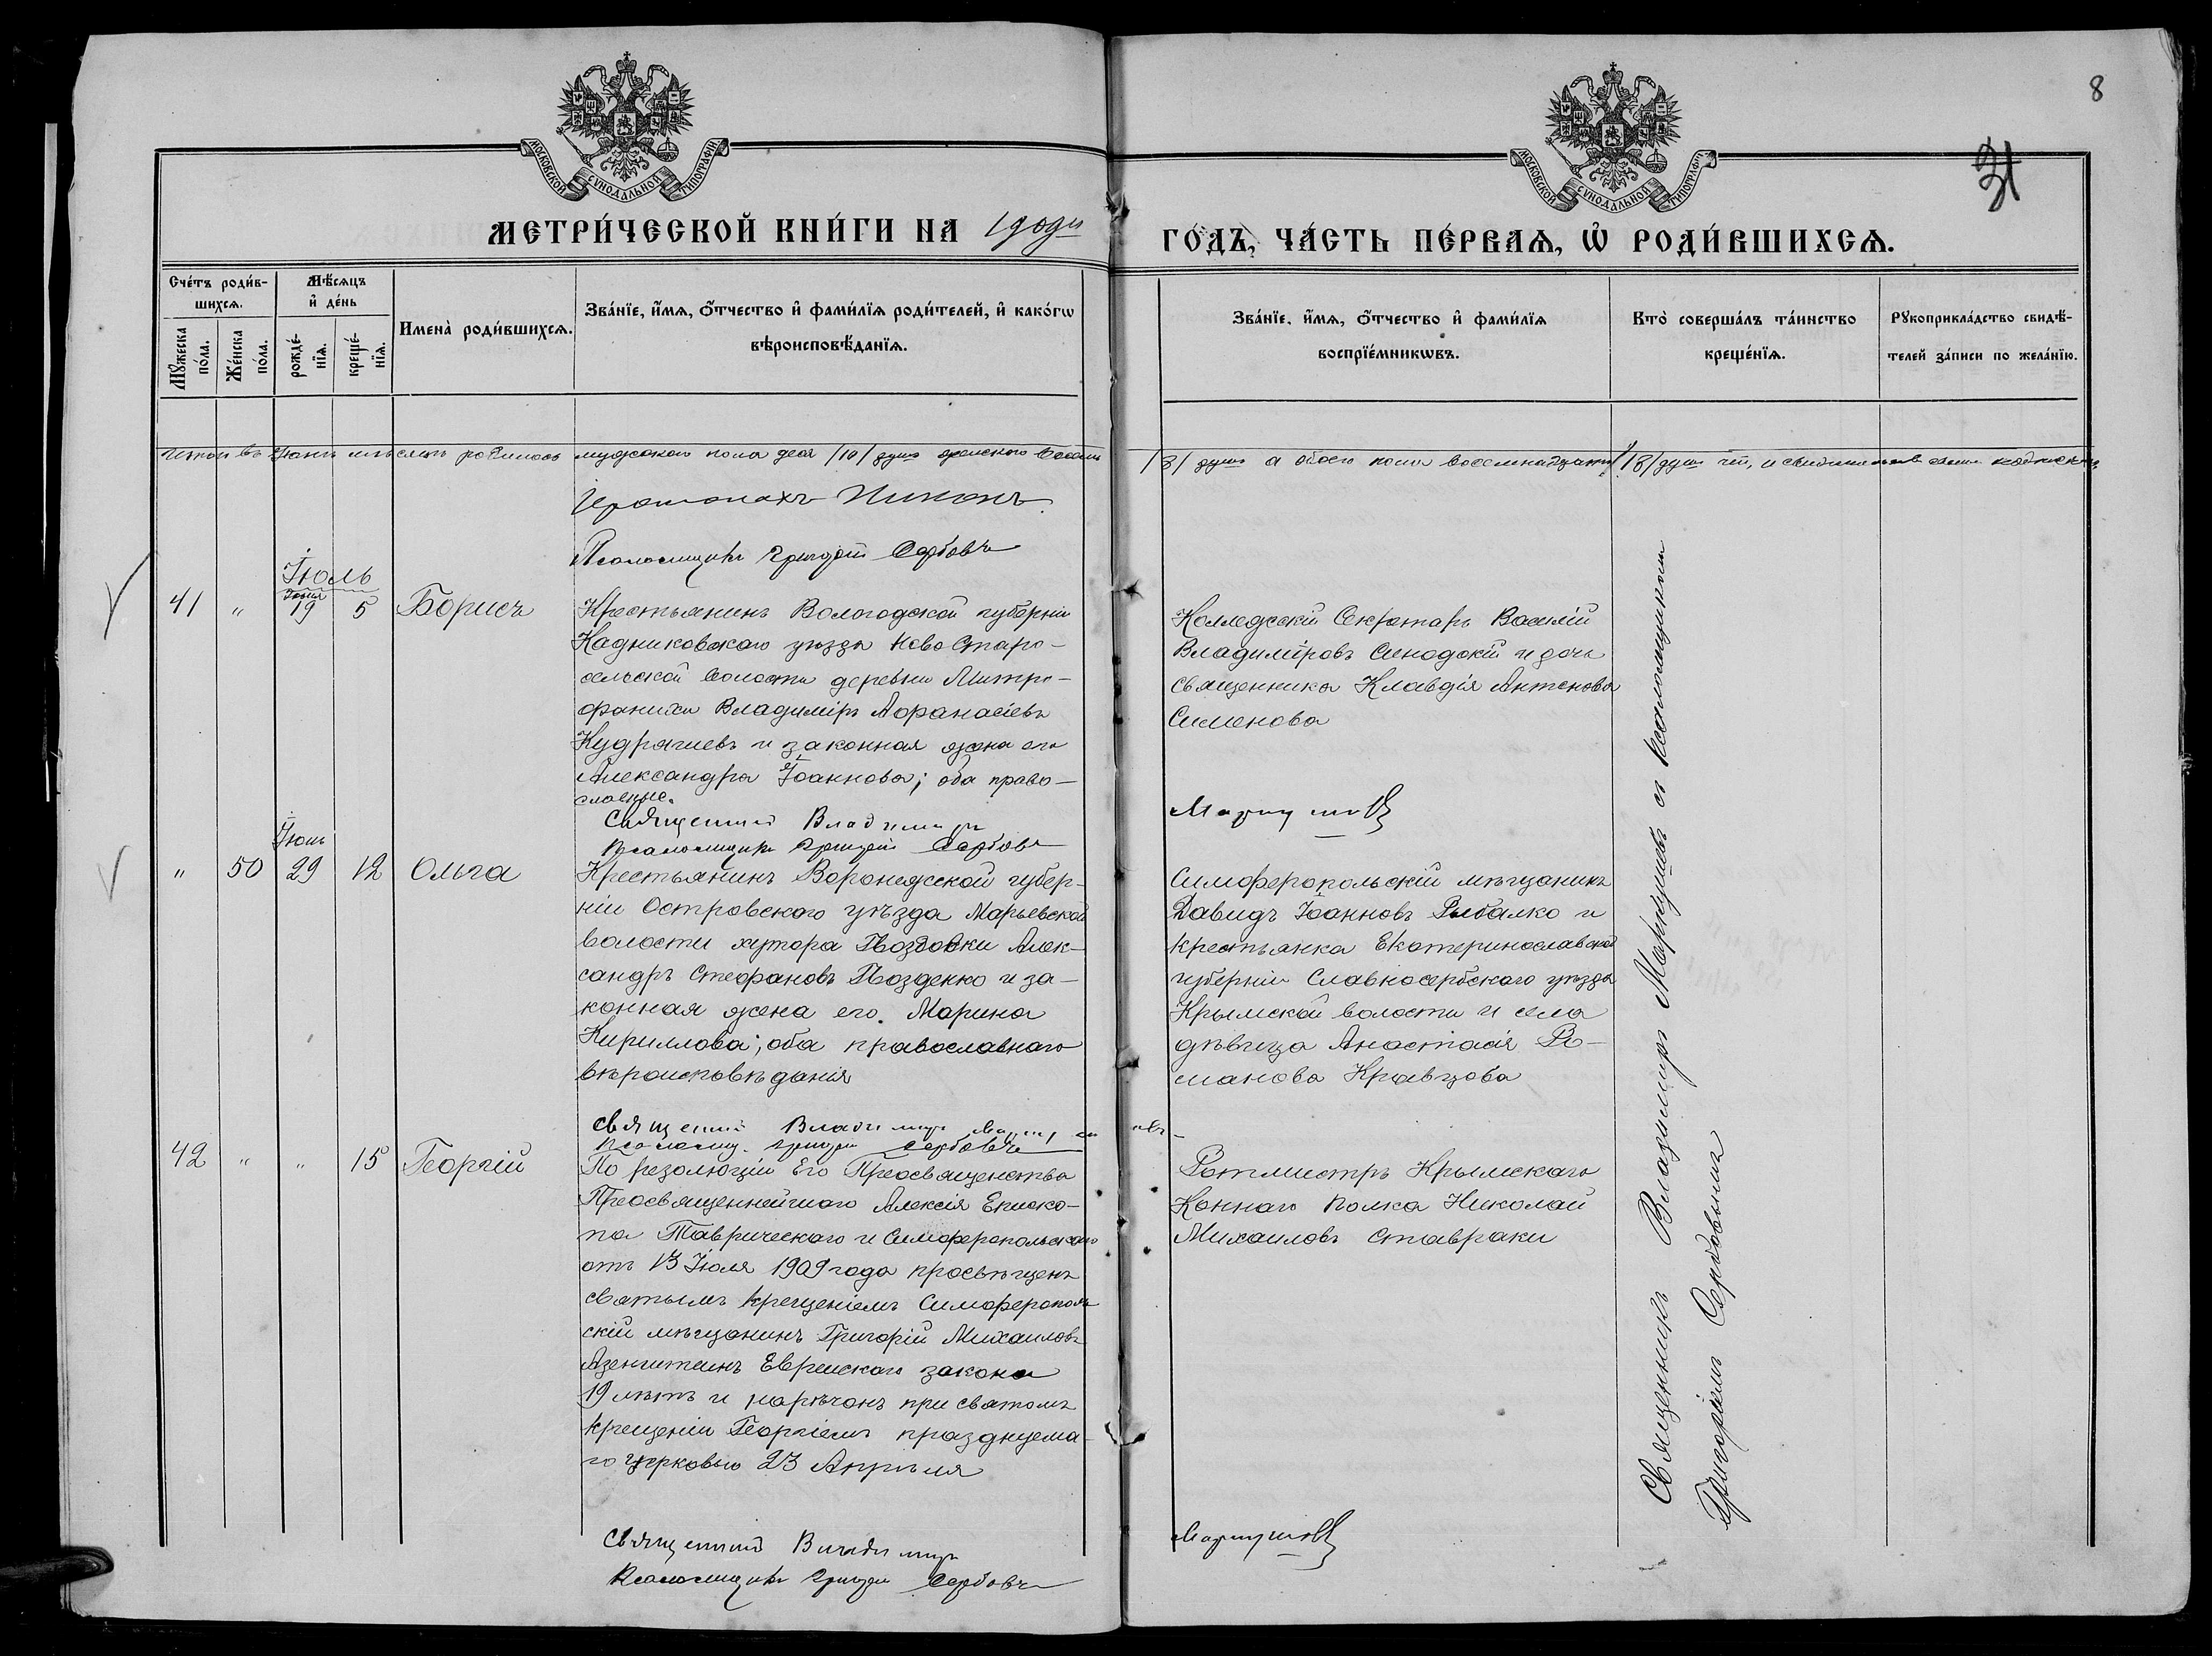 8
31
МОСКОВСКОЙ СѴНОДАЛЬНОЙ ТИПОГРАФІИ
МОСКОВСКОЙ СѴНОДАЛЬНОЙ ТИПОГРАФІИ
МЕТРИ́ЧЕСКОЙ КНИ́ГИ НА 1909 ГО́ДЪ, ЧА́СТЬ ПЕ́РВАѦ, Ѡ҆ РОДИ́ВШИХСѦ.
Сче́тъ роди́в-
шихсѧ.
Мꙋ́жеска по́ла.
Же́нска по́ла.
Мѣ́сѧцъ и҆ де́нь
рожде́-нїѧ.
креще́-нїѧ.
Имена̀ роди́вшихсѧ.
Зва́нїе, и҆́мѧ, ѻ҆́тчество и҆ фами́лїѧ роди́телей, и҆ како́гѡ
вѣроисповѣ́данїѧ.
Зва́нїе, и҆́мѧ, ѻ҆́тчество и҆ фами́лїѧ
воспрїе́мникѡвъ.
Кто̀ соверша́лъ та́инство
креще́нїѧ.
Рꙋкоприкла́дство свидѣ́-
телей за́писи по жела́нїю.
Итого въ Іюнѣ мѣсяцѣ родилось мужского пола деся /10/ душъ женского восемь /8/ душъ а обоего пола восемнадцать /18/ душъ
Іеромонахъ Никонъ
Псаломщикъ Григорій Сербовъ
Іюль
Іюня
41 " 19 5 Борисъ
Крестьянинъ Вологодской губерніи
Кадниковскаго уѣзда Ново Старо-
сельской волости деревни Митро-
фанихи Владиміръ Аѳанасіевъ
Кудрячиевъ и законная жена его
Александра Іоаннова; оба право-
славные.
Колледскій Секретарь Василій
Владиміровъ Синодскій и дочь
священника Клавдія Антонова
Сименова
Священникъ Владимиръ Маркушевъ
Псаломщикъ Григорій Сербовъ
Іюнь
" 50 29 12 Ольга
Крестьянинъ Воронежской губер-
ніи Островского уѣзда Марьевской
волости хутора Гвоздовки Алек-
сандръ Стефановъ Гвозденко и за-
конная жена его. Марина
Кириллова; оба православнаго
вѣроисповѣданія
Симферопольскій мѣщанинъ
Давидъ Іоанновъ Рыбалко и
крестьянка Екатеринославской
губерніи Славносербского уѣзда
Крымской волости и села
дѣвица Анастасія Ро-
манова Кравцова
Священникъ Владимиръ Маркушевъ
Псаломщ. Григорій Сербовъ
42 " " 15 Георгій
По резолюціи Его Преосвященства
Преосвященнейшаго Алексія Еписко-
па Таврическаго и Симферопольскаго
отъ 13 Іюля 1909 года просвѣщенъ
святымъ крещеніемъ Симферополь
скій мѣщанинъ Григорій Михаиловъ
Азенштеинъ Еврейскаго закона
19 лѣтъ и нарѣчонъ при святомъ
крещеніи Георгіемъ празднуема-
го церковью 23 Апрѣля
Ротмистръ Крымскаго
Коннаго Полка Николай
Михаиловъ Ставраки
Священникъ Владимиръ Маркушевъ
Псаломщикъ Григорій Сербовъ
Священникъ Владимиръ Маркушевъ съ псаломщикомъ
Григоріемъ Сербовымъ